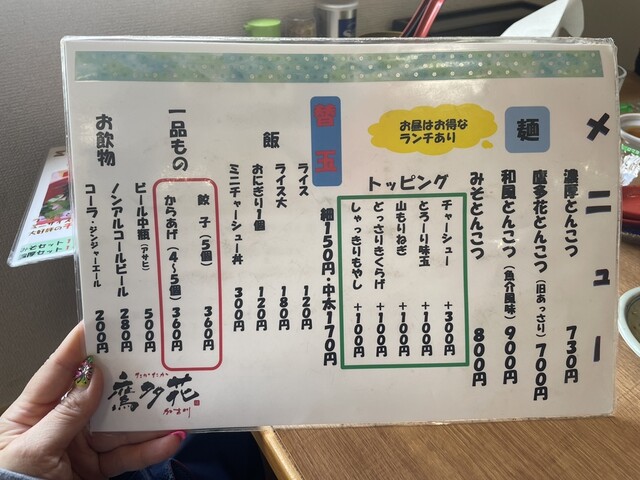 メニュー
麺
濃厚とんこつ 730円
鷹多花とんこつ（旧あっさり） 700円
和風とんこつ（魚介風味） 900円
みそとんこつ 800円
お昼はお得な
ランチあり
トッピング
チャーシュー +300円
とろーり味玉 +100円
山もりねぎ +100円
どっさりきくらげ +100円
しゃっきりもやし +100円
替玉
細150円・中太170円
飯
ライス 120円
ライス大 180円
おにぎり1個 120円
ミニチャーシュー丼 300円
一品もの
餃子（5個） 360円
からあげ（4〜5個） 360円
お飲物
ビール中瓶（アサヒ） 500円
ノンアルコールビール 280円
コーラ・ジンジャーエール 200円
鷹多花